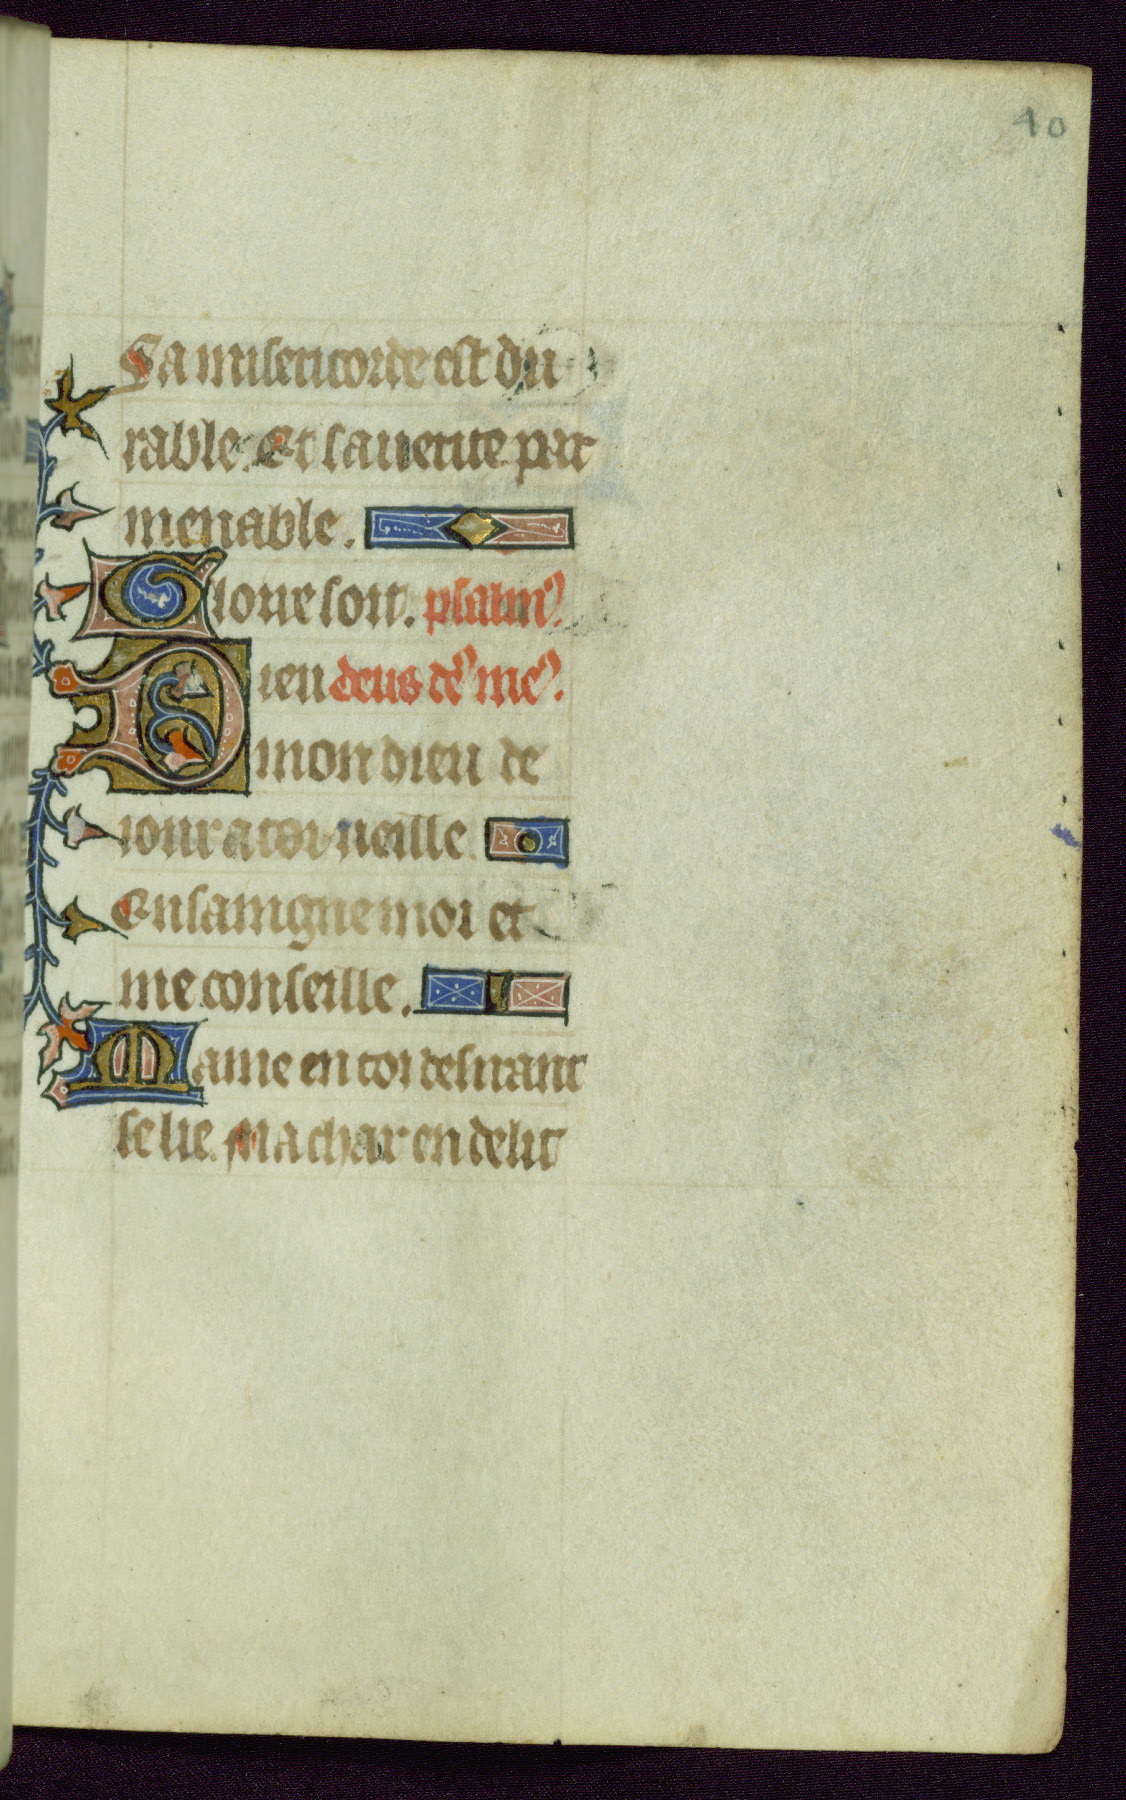 40
Sa misericorde est du
rable. Et sa uerite par
menable.
Gloire soit. psalm9.
Dieu deus de9 me9.
mon dieu de
iour a toi ueille
Ensaigne moi et
me conseille.
Mame en toi desirant
se lie. Ma char en delit